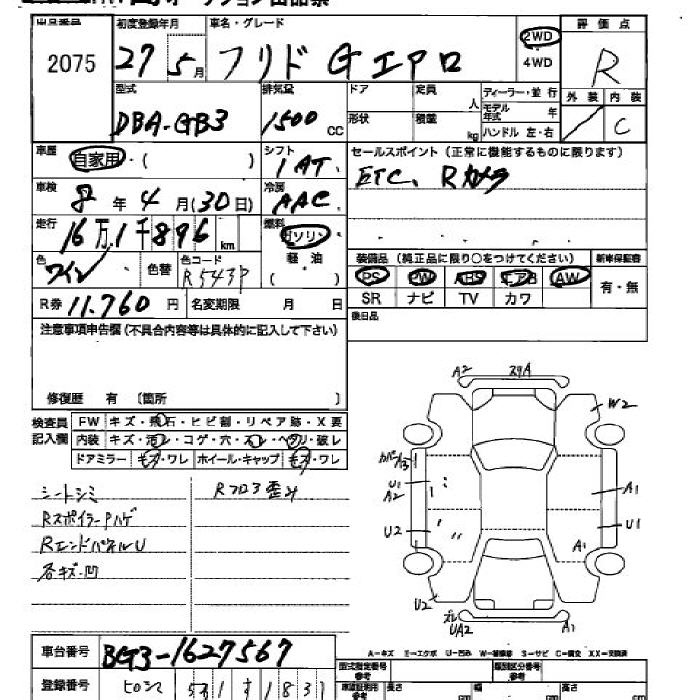 出品番号 初度登録年月 車名・グレード 2WD 評価点
2075 27 5月 フリド Gエアロ 4WD R
型式 排気量 ドア 定員 人 ディーラー・並行 外装 内装
DBA-GB3 1500 CC 形状 積載 kg モデル年式 年 C
ハンドル 左・右
車歴 自家用・( ) シフト セールスポイント(正常に機能するものに限ります)
1AT ETC、Rカメラ
車検 8年4月(30日) 冷房 AAC
走行 16万1千896km 燃料 ガソリン
軽油
( )
装備品(純正品に限り○をつけてください) 新車保証書
色 ワイン 色替 色コード R543P PS PW ABS エアB AW 有・無
SR ナビ TV カワ
R券 11.760円 名変期限 月 日 後日品
注意事項申告欄(不具合内容等は具体的に記入して下さい)
修復歴 有 〔箇所
検査員記入欄 FW キズ・飛石・ヒビ割・リペア跡・X要
内装 キズ・汚レ・コゲ・穴・スレ・ヘタリ・破レ
ドアミラー キズ・ワレ ホイール・キャップ キズ・ワレ
シートシミ Rフロア歪み
RスポイラーPハゲ
RエンドパネルU
各キズ・凹
A2 29A
W2
カバーA3
U1 A2
A1
U2
U1
A1
U2
ズレ UA2
A1
A-キズ E-エクボ U-凹み W-補修跡 S-サビ C-腐食 XX-交換済
車台番号 BG3-1627567
型式指定番号 参考 類別区分番号 参考
登録番号 531 1831
車庫証明用 参考 長さ cm 幅 cm 高さ cm